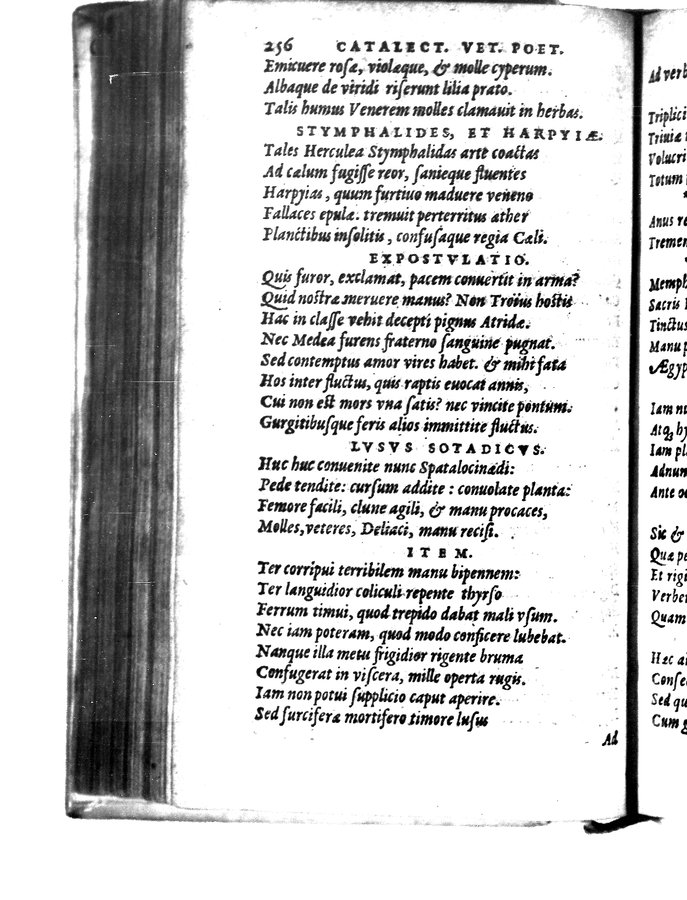 256 CATALECT. VET. POET.
Emicuere rosæ, violæque, & molle cyperum.
Albaque de viridi riserunt lilia prato.
Talis humus Venerem molles clamauit in herbas.
STYMPHALIDES, ET HARPYIÆ.
Tales Herculea Stymphalidas arte coactas
Ad cælum fugisse reor, sanieque fluentes
Harpyias, quum furtiuo maduere veneno
Fallaces epulæ. tremuit perterritus æther
Planctibus insolitis, confusaque regia Cæli.
EXPOSTVLATIO.
Quis furor, exclamat, pacem conuertit in arma?
Quid nostræ meruere manus? Non Troius hostis
Hac in classe vehit decepti pignus Atridæ.
Nec Medea furens fraterno sanguine pugnat.
Sed contemptus amor vires habet. & mihi fata
Hos inter fluctus, quis raptis euocat annis,
Cui non est mors vna satis? nec vincite pontum.
Gurgitibusque feris alios immittite fluctus.
LVSVS SOTADICVS.
Huc huc conuenite nunc Spatalocinædi:
Pede tendite: cursum addite: conuolate planta:
Femore facili, clune agili, & manu procaces,
Molles, veteres, Deliaci, manu recisi.
ITEM.
Ter corripui terribilem manu bipennem:
Ter languidior coliculi repente thyrso
Ferrum timui, quod trepido dabat mali vsum.
Nec iam poteram, quod modo conficere lubebat.
Nanque illa metu frigidior rigente bruma
Confugerat in viscera, mille operta rugis.
Iam non potui supplicio caput aperire.
Sed furciferæ mortifero timore lusus
Ad
Ad verb
Triplici
Triuiæ
Volucri
Totum
Anus
Tremen
Memph
Sacris
Tinctus
Manu
Ægyp
Iam
Iam
Adnun
Ante
Sic &
Quæ
Et rigi
Verber
Quam
Hæc
Sed
Cum